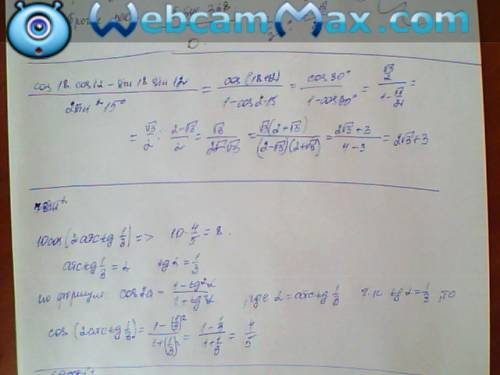 WebcamMax.com
cos 18 cos 12 - sin 18 sin 12 / 2 sin² 15° = cos(18+12) / 1 - cos 2·15 = cos 30° / 1 - cos 30° = √3/2 / 1 - √3/2 =
= √3/2 : 2-√3/2 = √3/2-√3 = √3(2+√3) / (2-√3)(2+√3) = 2√3+3 / 4-3 = 2√3+3
10cos(2arctg 1/3) => 10·4/5 = 8.
arctg 1/3 = α tg α = 1/3
по формул cos 2α = 1-tg²α / 1+tg²α , где α = arctg 1/3 т.к tg α = 1/3, то
cos(2arctg 1/3) = 1-(1/3)² / 1+(1/3)² = 1-1/9 / 1+1/9 = 4/5